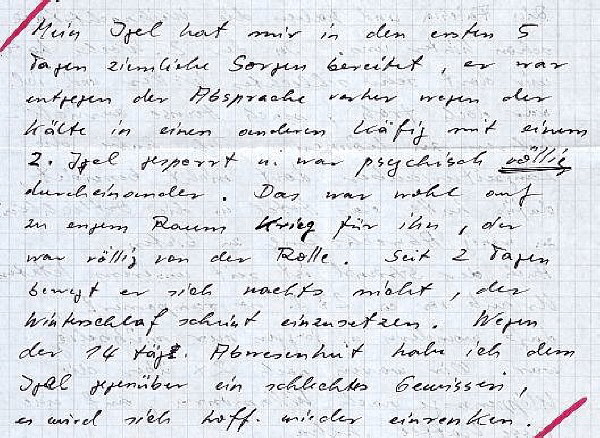 Mein Igel hat mir in den ersten 5
Tagen ziemliche Sorgen bereitet, er war
entgegen der Absprache vorher wegen der
Kälte in einen anderen Käfig mit einem
2. Igel gesperrt u. war psychisch völlig
durcheinander. Das war wohl auf
zu engem Raum Krieg für ihn, der
war völlig von der Rolle. Seit 2 Tagen
bewegt er sich nachts nicht, der
Winterschlaf scheint einzusetzen. Wegen
der 14 täg. Abwesenheit habe ich dem
Igel gegenüber ein schlechtes Gewissen,
es wird sich hoff. wieder einrenken.